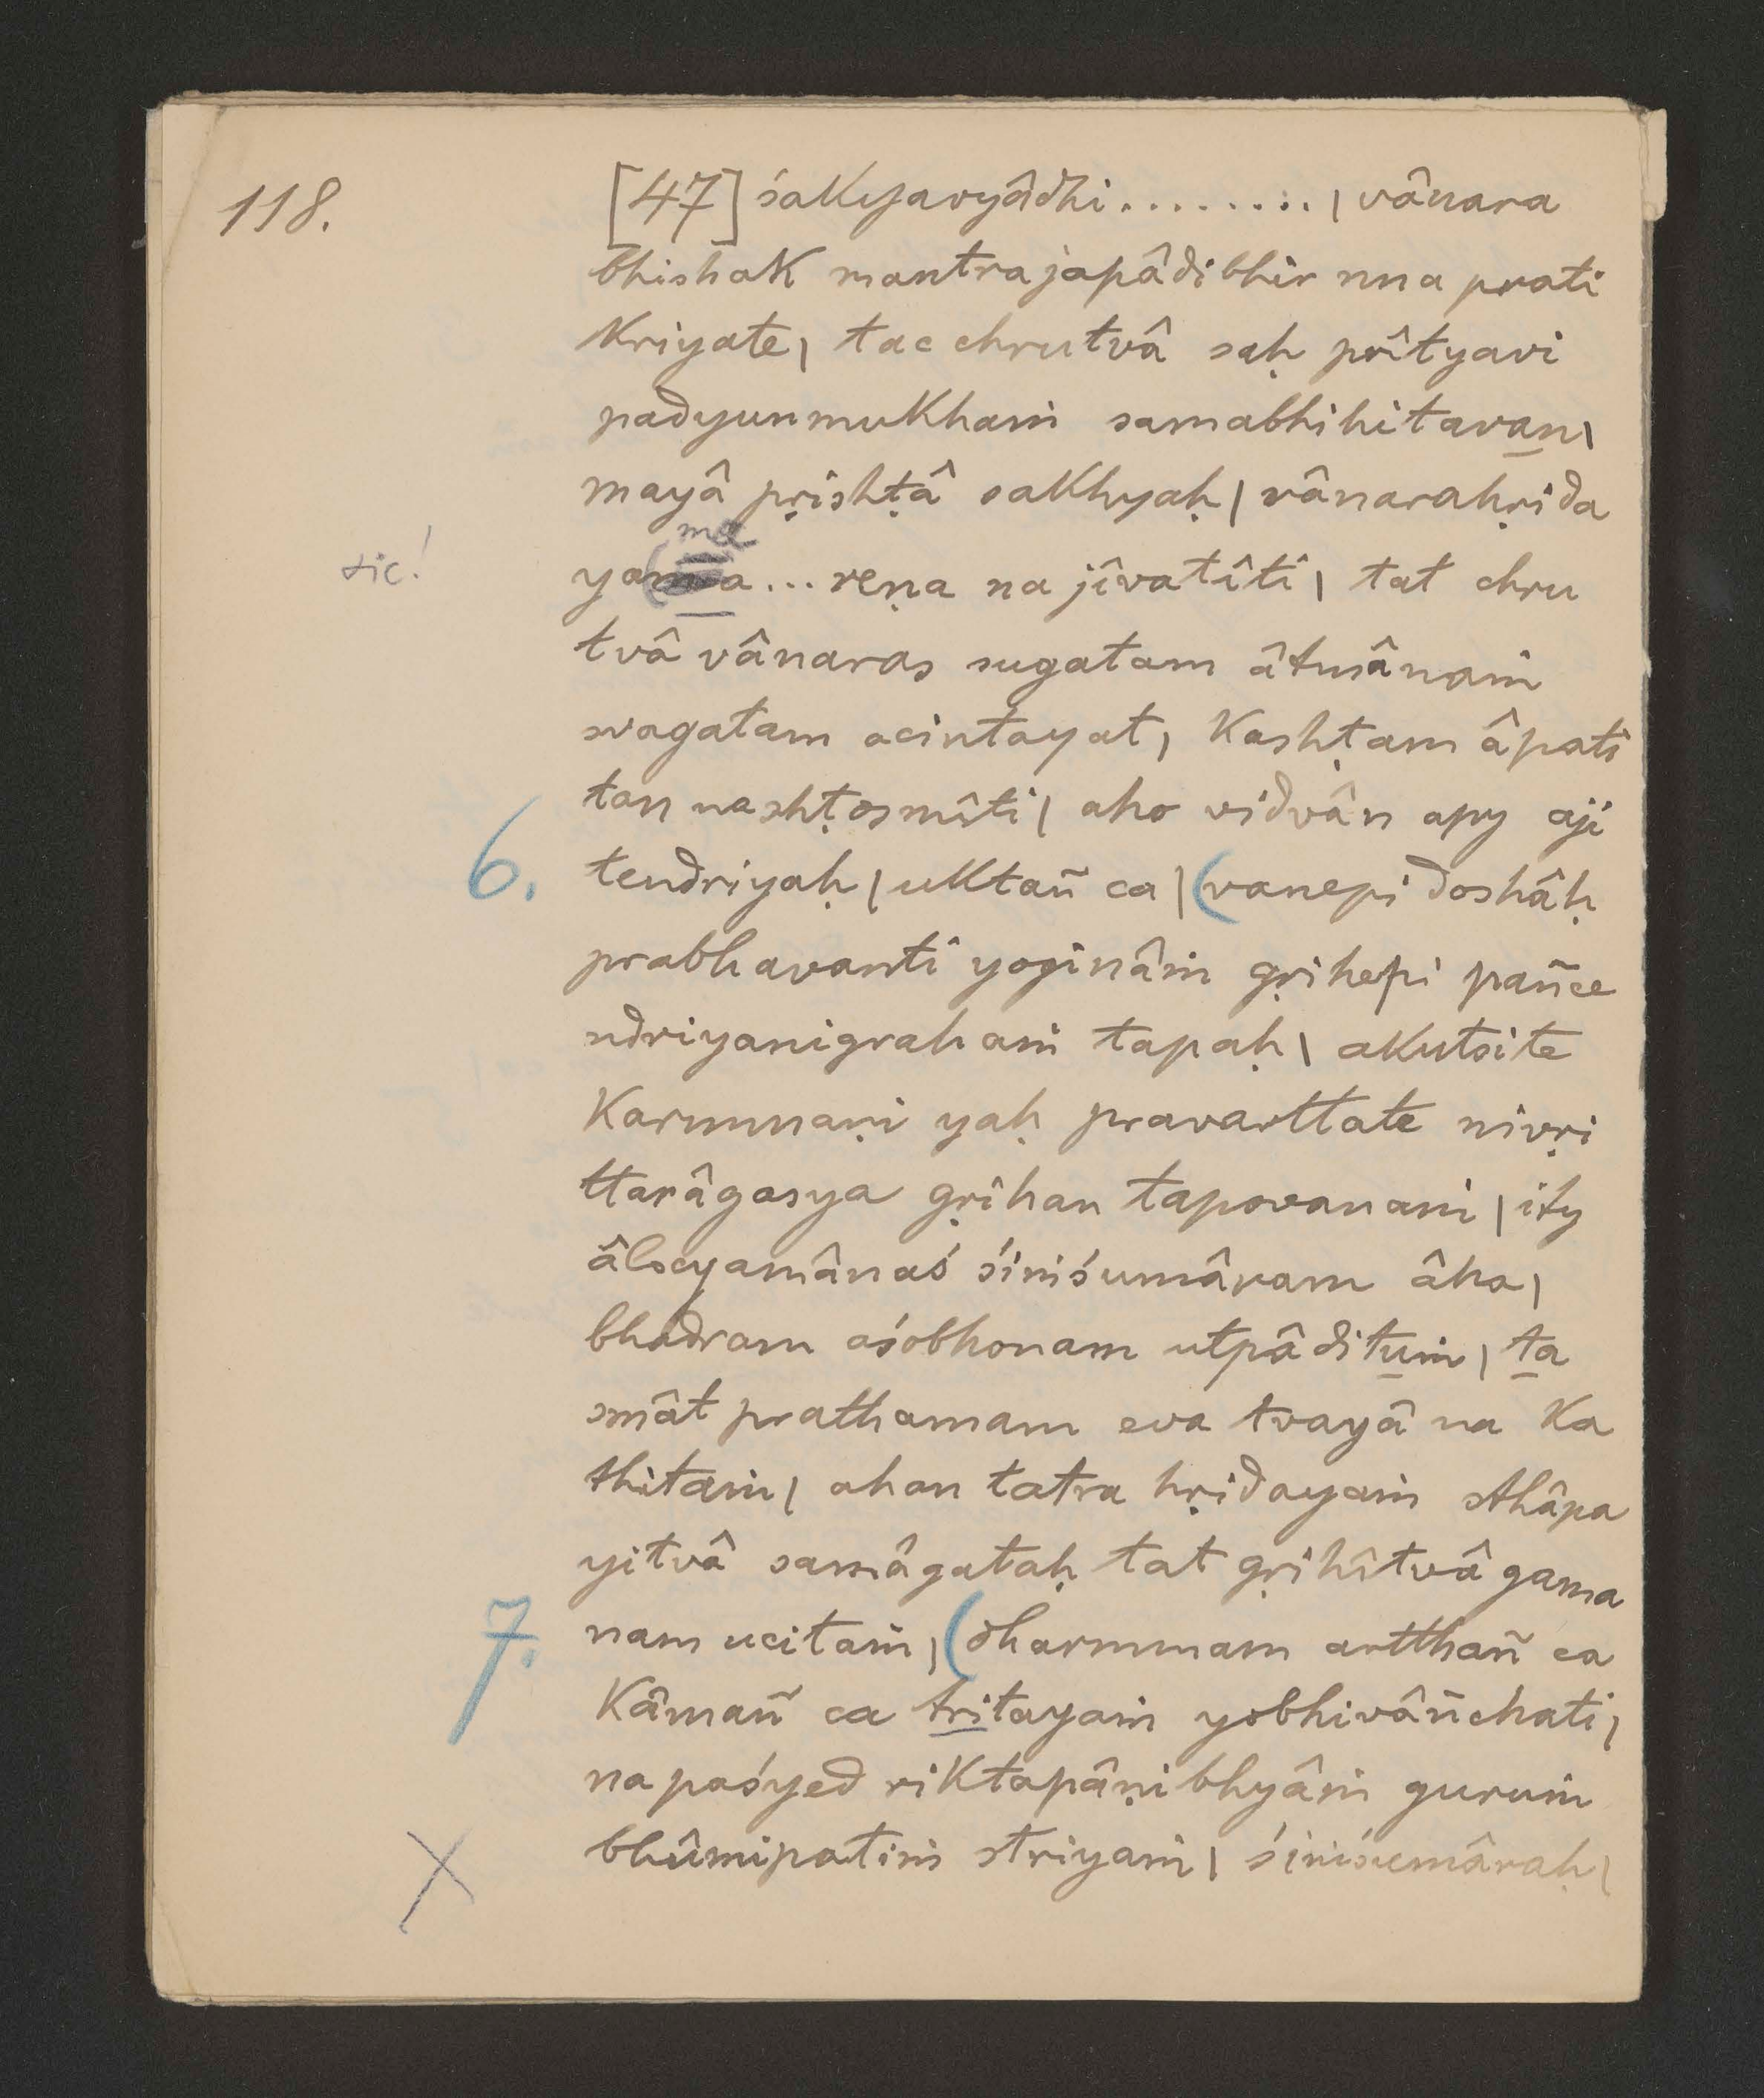 118.
[47] śakyavyâdhi ......... | vânara
bhishak mantrajapâdibhir nna prati
kriyate | tac chrutvâ saḥ prîtyavi
padyunmukhaṁ samabhihitavan |
mayâ pṛishṭâ sakhyaḥ | vânarahṛida
ma
sic! ya a...reṇa na jîvatîti | tat chru
tvâ vânaras sugatam âtmânaṁ
svagatam acintayat, kashṭam âpati
tan nashṭosmîti | aho vidvân apy aji
6. tendriyaḥ | uktañ ca | (vanepi doshâḥ
prabhavanti yoginâṁ gṛihepi pañce
ndriyanigrahaṁ tapaḥ | akutsite
karmmaṇi yaḥ pravarttate nivṛi
ttarâgasya gṛihan tapovanaṁ | ity
âlocyamânaś śiṁśumâram âha |
bhadram aśobhonam utpâdituṁ | ta
smât prathamam eva tvayâ na ka
thitaṁ | ahan tatra hṛidayaṁ sthâpa
yitvâ samâgataḥ tat gṛihîtvâ gama
7. nam ucitaṁ, (dharmmam artthañ ca
kâmañ ca tritayaṁ yobhivâñchati |
na paśyed riktapâṇibhyâṁ guruṁ
bhûmipatiṁ striyaṁ | śiṁśumâraḥ |
X